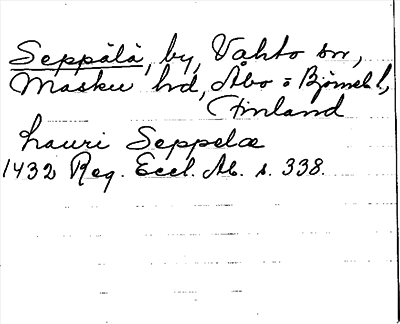 Seppälä, by, Vahto sn,
Masku hd, Åbo = Björneb l,
Finland
Lauri Seppelæ
1432 Reg. Eccl. Ab. s. 338.